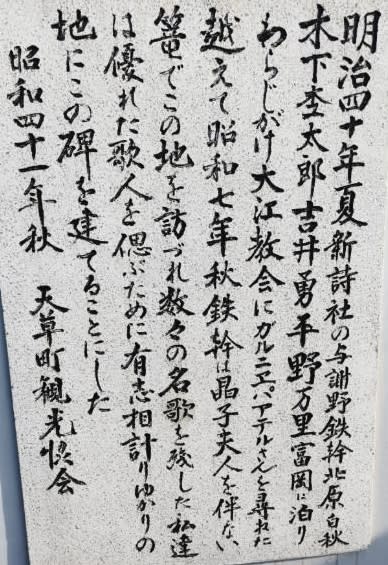 明治四十年夏新詩社の与謝野鉄幹北原白秋
木下杢太郎吉井勇平野万里富岡に泊り
わらじがけ大江教会にガルニエパアテルさんを尋ねた
越えて昭和七年秋鉄幹は晶子夫人を伴ない
篭でこの地を訪づれ数々の名歌を残した私達
は優れた歌人を偲ぶために有志相計りゆかりの
地にこの碑を建てることにした
昭和四十一年秋 天草町観光協会